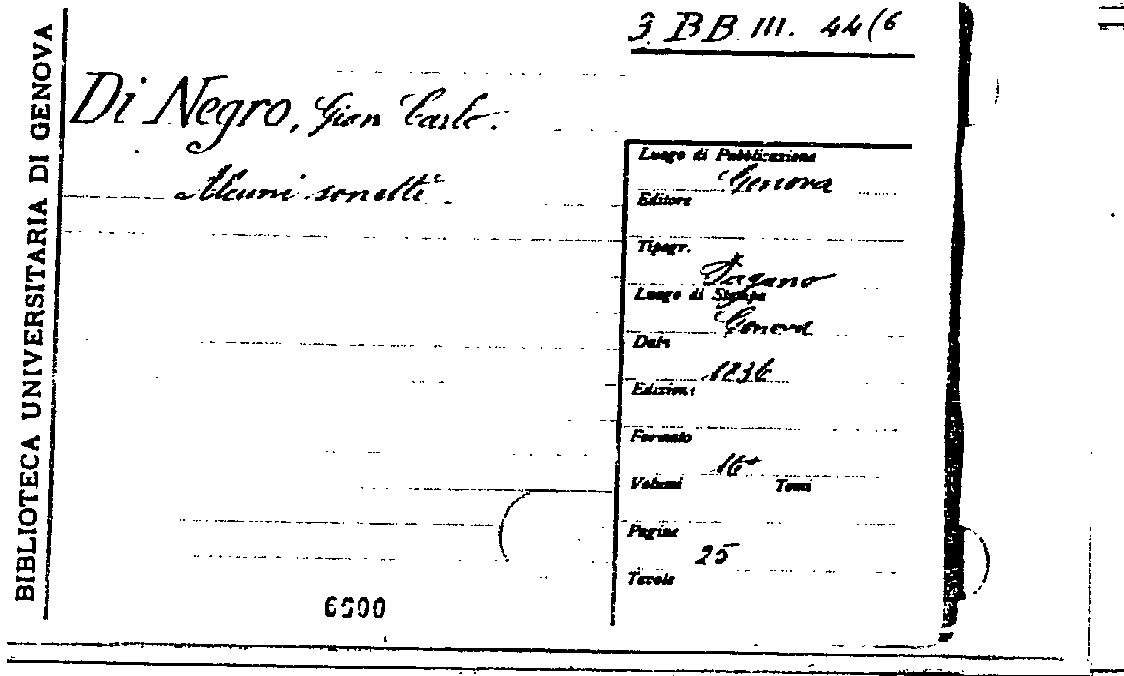 BIBLIOTECA UNIVERSITARIA DI GENOVA
3 BB III. 44(6
Di Negro, Gian Carlo.
Alcuni sonetti.
Luogo di Pubblicazione
Genova
Editore
Tipogr.
Pagano
Luogo di Stampa
Genova
Data
1836
Edizione
Formato
16°
Volumi Tomi
Pagine
25
Tavole